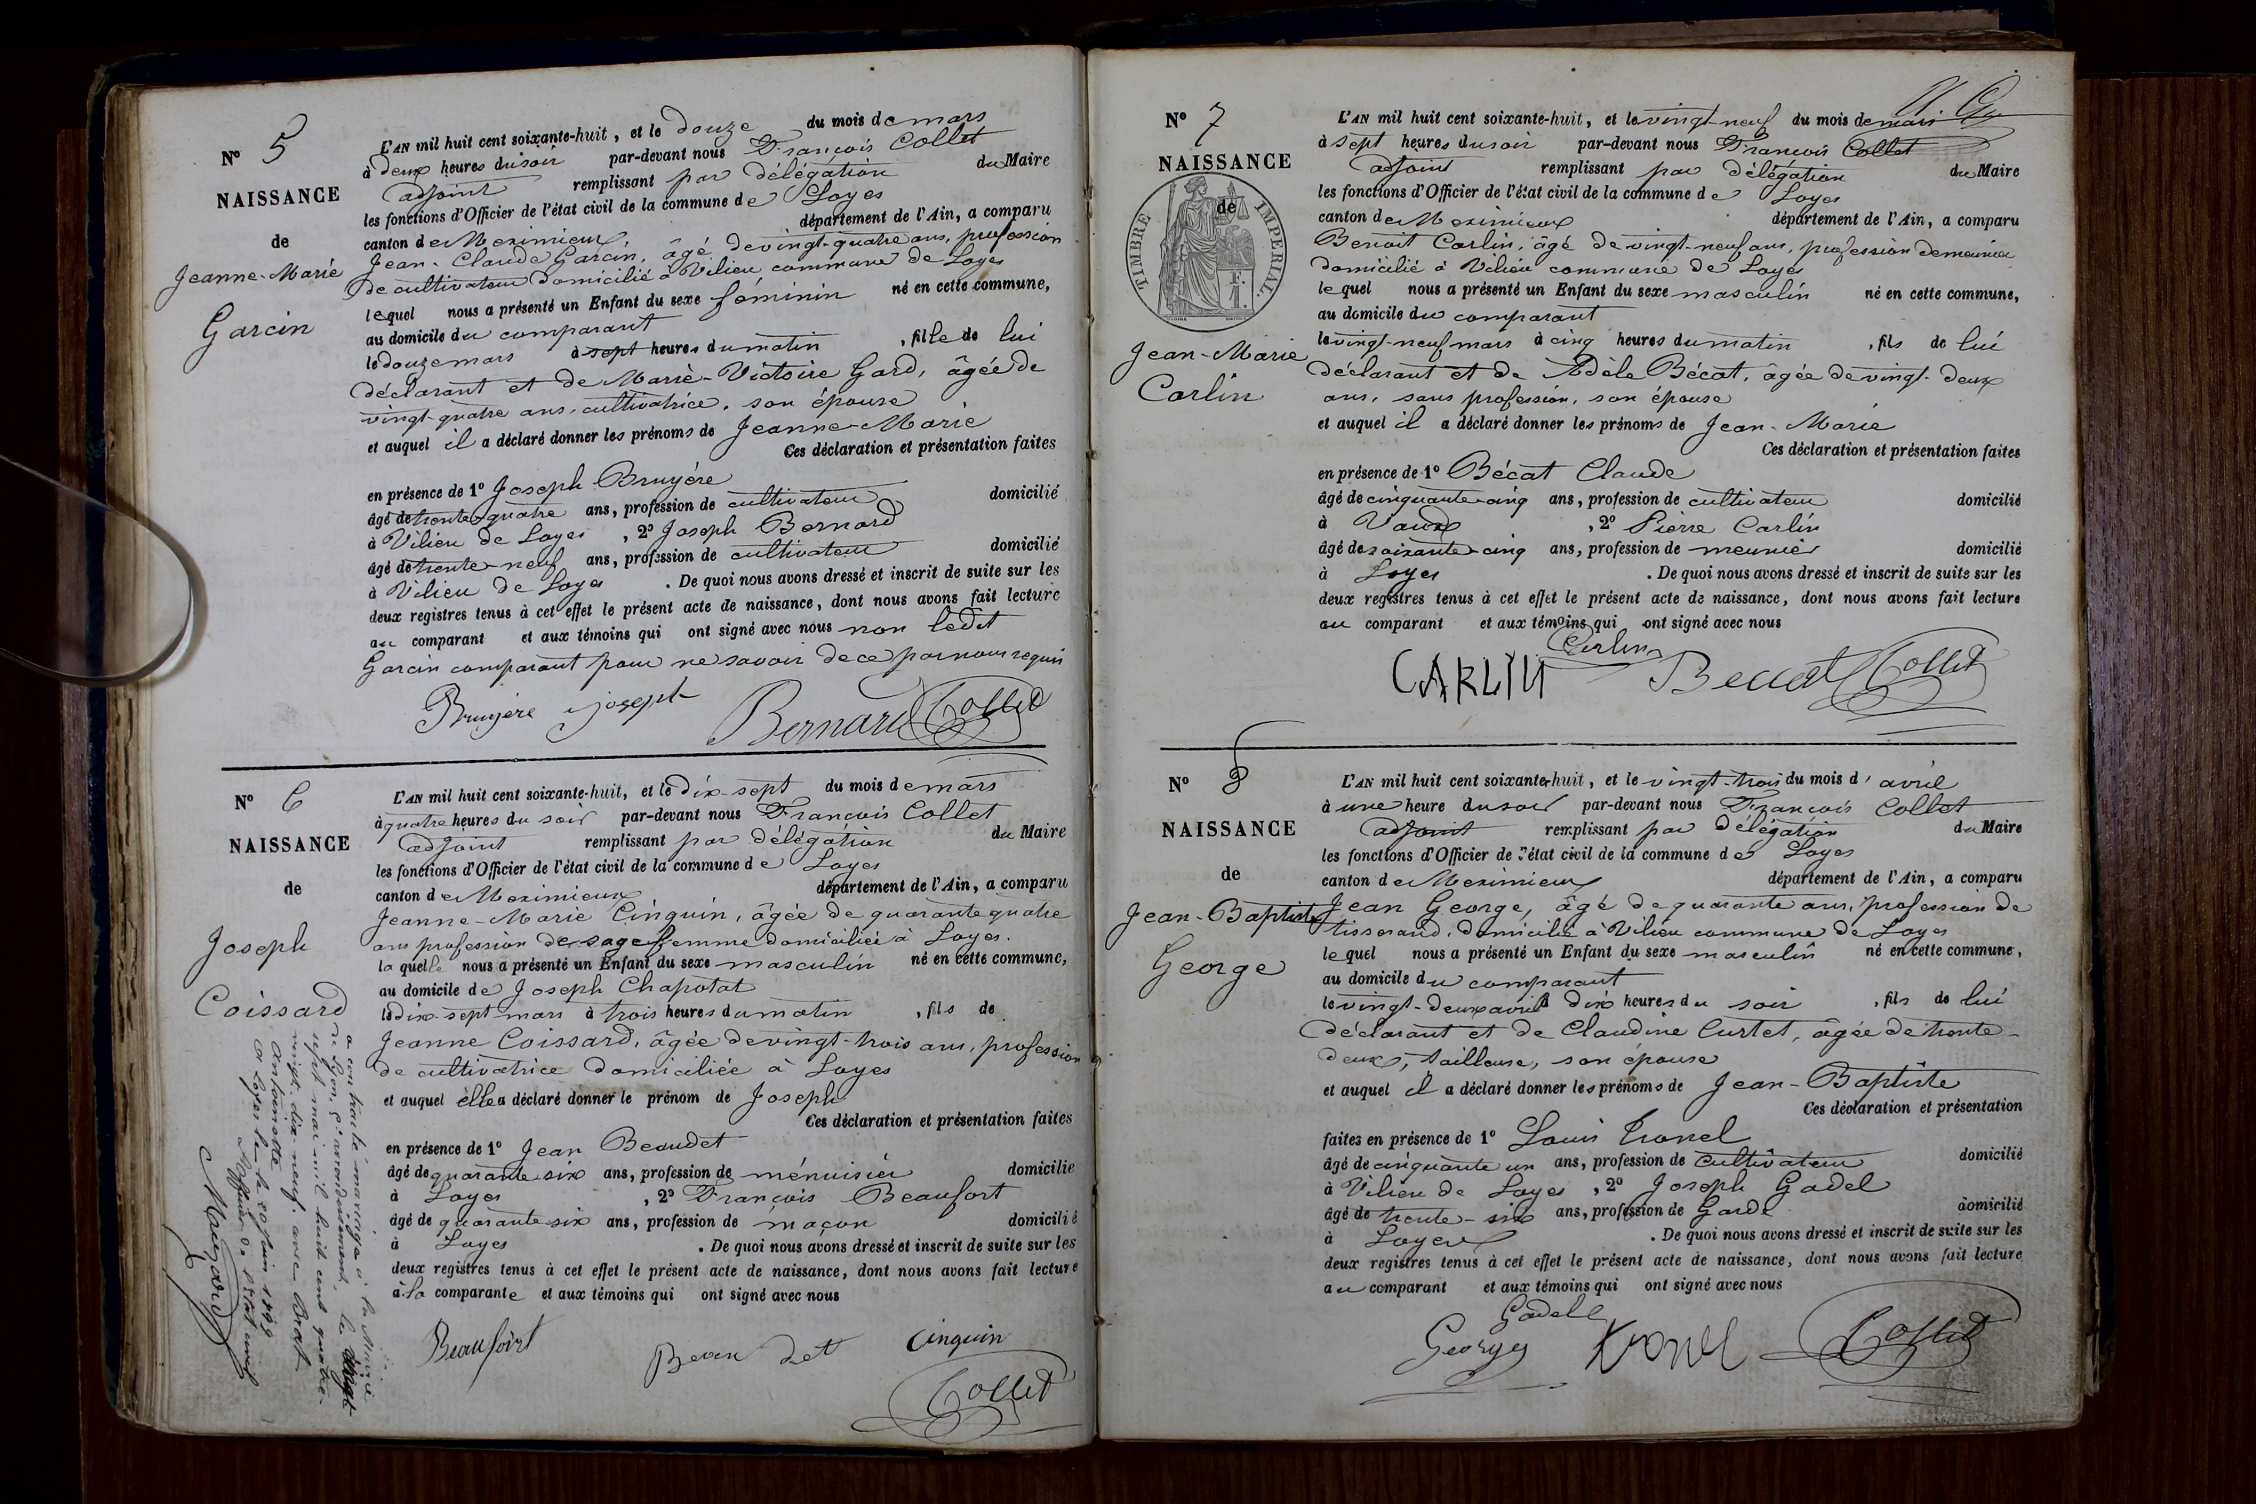 N° 5
NAISSANCE
de
Jeanne-Marie
Garcin
L'AN mil huit cent soixante-huit, et le douze du mois de mars
à deux heures du soir par-devant nous François Collet
adjoint remplissant par délégation du Maire
les fonctions d'Officier de l'état civil de la commune de Loyes
canton de Meximieux département de l'Ain, a comparu
Jean-Claude Garcin, âgé de vingt-quatre ans, profession
de cultivateur domicilié à Vilieu commune de Loyes
lequel nous a présenté un Enfant du sexe féminin né en cette commune,
au domicile du comparant
le douze mars à sept heures du matin, fille de lui
déclarant et de Marie-Victoire Gard, âgée de
vingt-quatre ans, cultivatrice, son épouse
et auquel il a déclaré donner les prénoms de Jeanne-Marie
Ces déclaration et présentation faites
en présence de 1° Joseph Bruyère
âgé de trente-quatre ans, profession de cultivateur domicilié
à Vilieu de Loyes, 2° Joseph Bernard
âgé de trente-neuf ans, profession de cultivateur domicilié
à Vilieu de Loyes. De quoi nous avons dressé et inscrit de suite sur les
deux registres tenus à cet effet le présent acte de naissance, dont nous avons fait lecture
au comparant et aux témoins qui ont signé avec nous non ledit
Garcin comparant pour ne savoir de ce par nous requis
Bruyère joseph Bernard Collet
N° 6
NAISSANCE
de
Joseph
Coissard
a contracté mariage à la Mairie
de Lyon, arrondissement, le vingt
sept mai mil huit cent quatre-
vingt-dix neuf. avec Brat
Antoinette
A Loyes le 20 juin 1899
L'AN mil huit cent soixante-huit, et le dix-sept du mois de mars
à quatre heures du soir par-devant nous François Collet
adjoint remplissant par délégation du Maire
les fonctions d'Officier de l'état civil de la commune de Loyes
canton de Meximieux département de l'Ain, a comparu
Jeanne-Marie Cinquin, âgée de quarante quatre
ans profession de sage femme domiciliée à Loyes.
laquelle nous a présenté un Enfant du sexe masculin né en cette commune,
au domicile de Joseph Chapotat
le dix-sept mars à trois heures du matin, fils de
Jeanne Coissard, âgée de vingt-trois ans, profession
de cultivatrice domiciliée à Loyes
et auquel elle a déclaré donner le prénom de Joseph
Ces déclaration et présentation faites
en présence de 1° Jean Beaudet
âgé de quarante six ans, profession de menuisier domicilié
à Loyes, 2° François Beaufort
âgé de quarante-six ans, profession de maçon domicilié
à Loyes. De quoi nous avons dressé et inscrit de suite sur les
deux registres tenus à cet effet le présent acte de naissance, dont nous avons fait lecture
à la comparante et aux témoins qui ont signé avec nous
Beaufort Beau det Cinquin
Collet
N° 7
NAISSANCE
de
TIMBRE IMPERIAL
Jean-Marie
Carlin
L'AN mil huit cent soixante-huit, et le vingt-neuf du mois de mars
à sept heures du soir par-devant nous François Collet
adjoint remplissant par délégation du Maire
les fonctions d'Officier de l'état civil de la commune de Loyes
canton de Meximieux département de l'Ain, a comparu
Benoit Carlin, âgé de vingt-neuf ans, profession de meunier
domicilié à Vilieu commune de Loyes
lequel nous a présenté un Enfant du sexe masculin né en cette commune,
au domicile du comparant
le vingt-neuf mars à cinq heures du matin, fils de lui
déclarant et de Adèle Bécat, âgée de vingt-deux
ans, sans profession, son épouse
et auquel il a déclaré donner les prénoms de Jean-Marie
Ces déclaration et présentation faites
en présence de 1° Bécat Claude
âgé de cinquante-cinq ans, profession de cultivateur domicilié
à Vaux, 2° Pierre Carlin
âgé de soixante-cinq ans, profession de meunier domicilié
à Loyes. De quoi nous avons dressé et inscrit de suite sur les
deux registres tenus à cet effet le présent acte de naissance, dont nous avons fait lecture
au comparant et aux témoins qui ont signé avec nous
Carlin
CARLIN Beccat Collet
N° 8
NAISSANCE
de
Jean-Baptiste
George
L'AN mil huit cent soixante-huit, et le vingt-trois du mois d'avril
à une heure du soir par-devant nous François Collet
adjoint remplissant par délégation du Maire
les fonctions d'Officier de l'état civil de la commune de Loyes
canton de Meximieux département de l'Ain, a comparu
Jean George, âgé de quarante ans, profession de
tisserand, domicilié à Vilieu commune de Loyes
lequel nous a présenté un Enfant du sexe masculin né en cette commune,
au domicile du comparant
le vingt-deux avril à dix heures du soir, fils de lui
déclarant et de Claudine Curtet, âgée de trente-
deux, tailleuse, son épouse
et auquel il a déclaré donner les prénoms de Jean-Baptiste
Ces déclaration et présentation
faites en présence de 1° Louis Tronel
âgé de cinquante un ans, profession de cultivateur domicilié
à Vilieu de Loyes, 2° Joseph Gadel
âgé de trente-six ans, profession de Garde domicilié
à Loyes. De quoi nous avons dressé et inscrit de suite sur les
deux registres tenus à cet effet le présent acte de naissance, dont nous avons fait lecture
au comparant et aux témoins qui ont signé avec nous
Gadel
George Tronel Collet